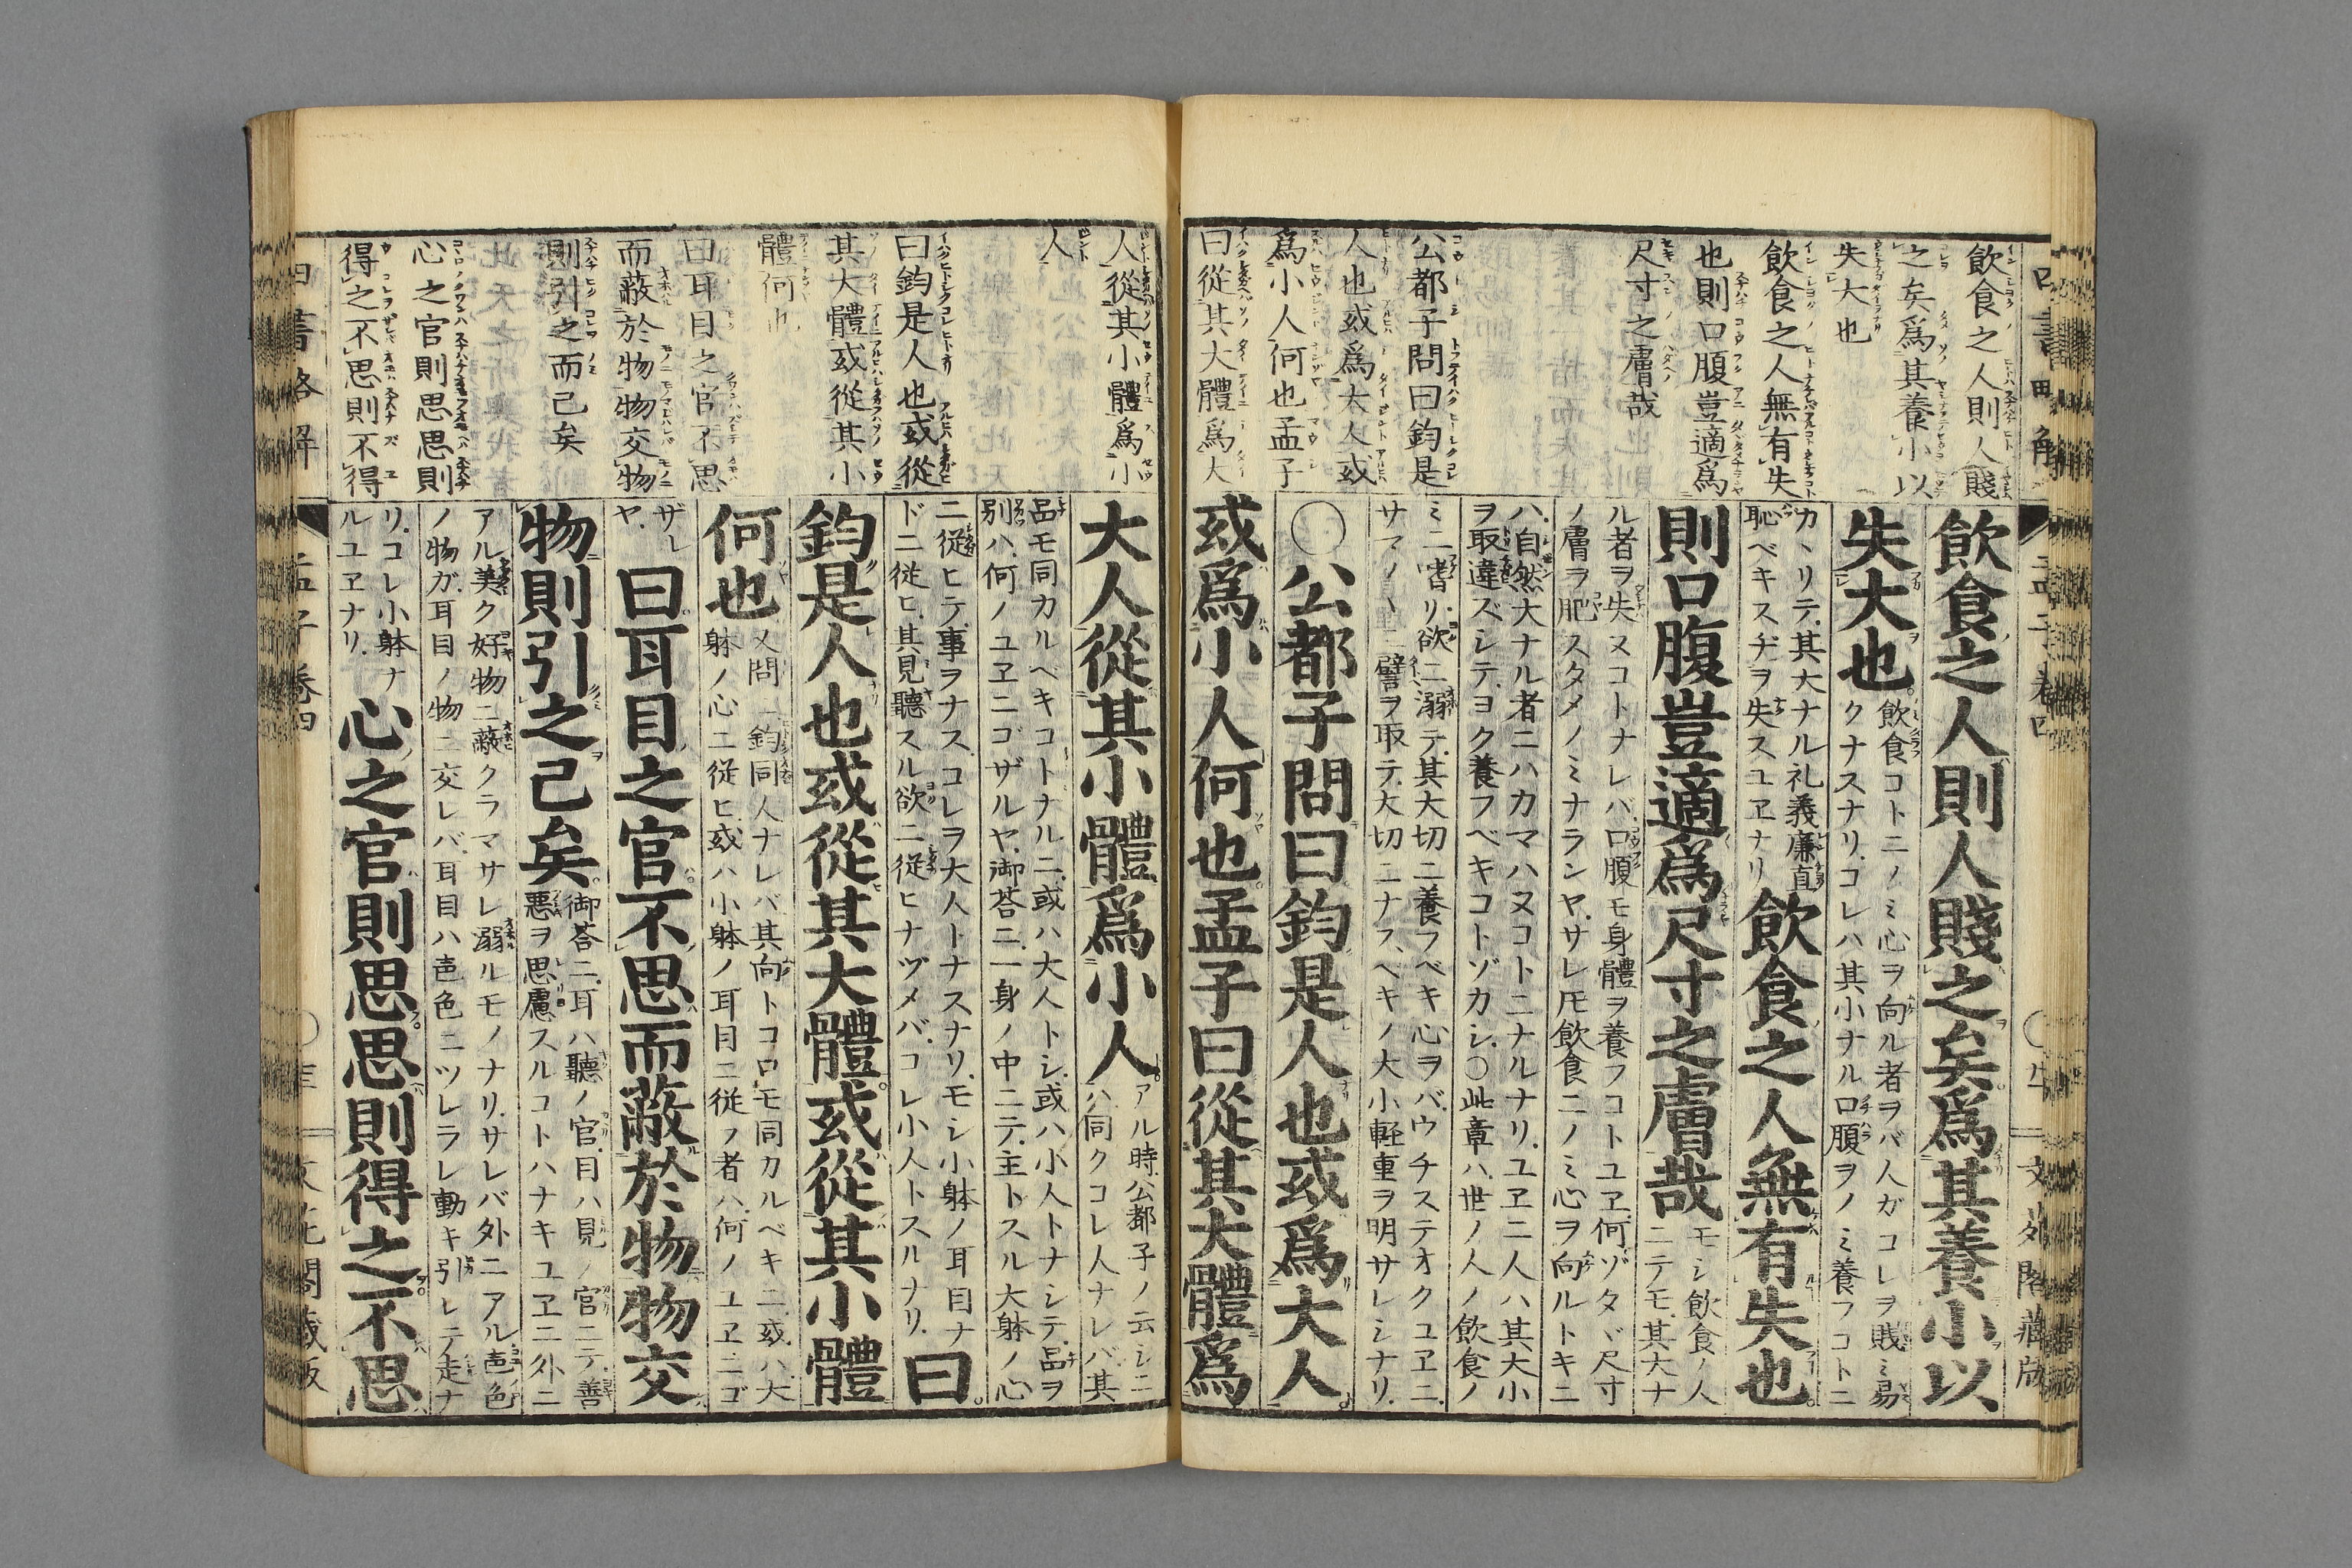 四書略解 孟子卷四 文花閣藏版
飮食之人則人賤
之矣爲其養小以
失大也
飮食之人無有失
也則口腹豈適爲
尺寸之膚哉
公都子問曰鈞是
人也或爲大人或
爲小人何也孟子
曰從其大體爲大
飮食之人則人賤之矣爲其養小以
失大也
飮食コトニノミ心ヲ向ル者ヲバ人ガコレヲ賤ミ易
クナスナリ.コレハ其小ナル口腹ヲノミ養フコトニ
カヽリテ.其大ナル礼義廉直
恥ベキスヂヲ失スユヱナリ
飮食之人無有失也
則口腹豈適爲尺寸之膚哉
モシ飮食ノ人
ニテモ.其大ナ
ル者ヲ失ヌコトナレバ.口腹モ身體ヲ養フコトユヱ.何ゾタヾ尺寸
ノ膚ヲ肥スタメノミナランヤ.サレ𪜈飮食ニノミ心ヲ向ルトキニ
ハ.自然大ナル者ニハカマハヌコトニナルナリ.ユヱニ人ハ其大小
ヲ取違ズシテ.ヨク養フベキコトゾカシ.〇此章ハ.世ノ人ノ飮食ノ
ミニ嗜リ.欲ニ溺テ.其大切ニ養フベキ心ヲバウチステオクユヱニ.
サマ〴〵ニ譬ヲ取テ.大切ニナスベキノ大小軽重ヲ明サレシナリ.
〇公都子問曰鈞是人也或爲大人
或爲小人何也孟子曰從其大體爲
人從其小體爲小
人
曰鈞是人也或從
其大體或從其小
體何也
曰耳目之官不思
而蔽於物物交物
則引之而已矣
心之官則思思則
得之不思則不得
大人從其小體爲小人
アル時.公都子ノ云シニ
ハ同クコレ人ナレバ.其
品モ同カルベキコトナルニ.或ハ大人トシ.或ハ小人トナシテ.品ヲ
別ハ.何ノユヱニゴザルヤ.御荅ニ一身ノ中ニテ.主トスル大躰ノ心
ニ從ヒテ.事ヲナス.コレヲ大人トナスナリ.モシ小躰ノ耳目ナ
ドニ從ヒ.其見聽スル欲ニ從ヒナヅメバ.コレ小人トスルナリ.
曰
鈞是人也或從其大體或從其小體
何也
又問 鈞同人ナレバ.其向トコロモ同カルベキニ.或ハ大
躰ノ心ニ從ヒ.或ハ小躰ノ耳目ニ從フ者ハ.何ノユヱニゴ
ザレ
ヤ.
曰耳目之官不思而蔽於物物交
物則引之已矣
御荅ニ.耳ハ聽ノ官.目ハ見ノ官ニテ.善
悪ヲ思慮スルコトハナキユヱニ外ニ
アル美ク好物ニ蔽クラマサレ溺ルモノナリ.サレバ外ニアル声色
ノ物ガ.耳目ノ物ニ交レバ.耳目ハ声色ニツレラレ動キ引レテ走ナ
リ.コレ小躰ナ
ルユヱナリ.
心之官則思思則得之不思
四書略解 孟子卷四 文花閣藏版